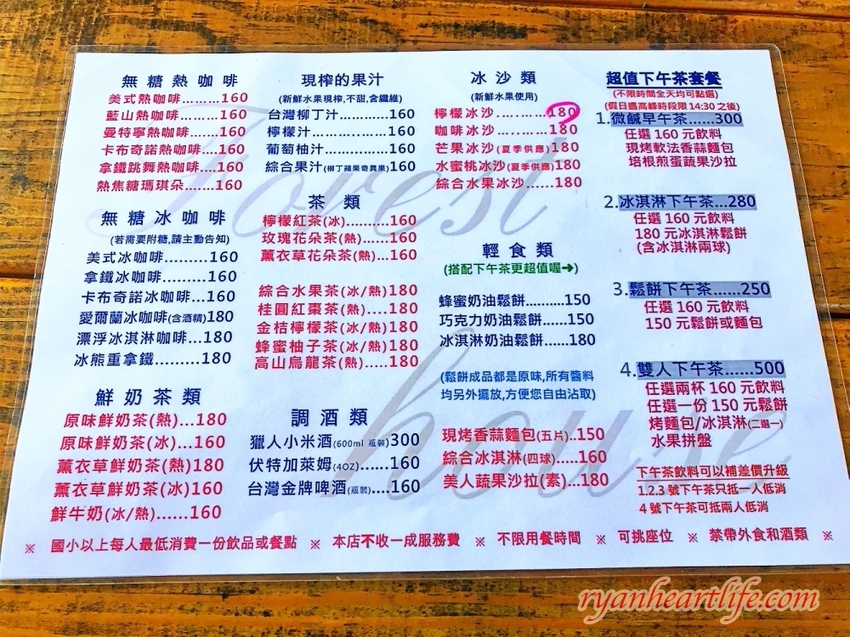 無糖熱咖啡
美式熱咖啡.........160
藍山熱咖啡.........160
曼特寧熱咖啡......160
卡布奇諾熱咖啡...160
拿鐵跳舞熱咖啡...160
熱焦糖瑪琪朵......160
無糖冰咖啡
(若需要附糖,請主動告知)
美式冰咖啡.........160
拿鐵冰咖啡.........160
卡布奇諾冰咖啡...160
愛爾蘭冰咖啡(含酒精)180
漂浮冰淇淋咖啡...180
冰熊重拿鐵.........180
鮮奶茶類
原味鮮奶茶(熱)...180
原味鮮奶茶(冰)...160
薰衣草鮮奶茶(熱)180
薰衣草鮮奶茶(冰)160
鮮牛奶(冰/熱)......160
現榨的果汁
(新鮮水果現榨,不甜,含纖維)
台灣柳丁汁............160
檸檬汁..................160
葡萄柚汁...............160
綜合果汁(柳丁蘋果奇異果)160
茶 類
檸檬紅茶(冰).........160
玫瑰花朵茶(熱)......160
薰衣草花朵茶(熱)...160
綜合水果茶(冰/熱)...180
桂圓紅棗茶(熱)......180
金桔檸檬茶(冰/熱)...180
蜂蜜柚子茶(冰/熱)...180
高山烏龍茶(熱)......180
調酒類
獵人小米酒(600ml 瓶裝)300
伏特加萊姆(4OZ)......160
台灣金牌啤酒(瓶裝)....160
冰沙類
(新鮮水果使用)
檸檬冰沙...........180
咖啡冰沙...........180
芒果冰沙(夏季供應)180
水蜜桃冰沙(夏季供應)180
綜合水果冰沙......180
輕食類
(搭配下午茶更超值喔➔)
蜂蜜奶油鬆餅......150
巧克力奶油鬆餅...150
冰淇淋奶油鬆餅...180
(鬆餅成品都是原味,所有醬料
均另外擺放,方便您自由沾取)
現烤香蒜麵包(五片)..150
綜合冰淇淋(四球).....160
美人蔬果沙拉(素)...180
超值下午茶套餐
(不限時間全天均可點選)
(假日遇高峰時段限14:30之後)
1.微鹹早午茶......300
任選 160 元飲料
現烤軟法香蒜麵包
培根煎蛋蔬果沙拉
2.冰淇淋下午茶...280
任選 160 元飲料
180 元冰淇淋鬆餅
(含冰淇淋兩球)
3.鬆餅下午茶......250
任選 160 元飲料
150 元鬆餅或麵包
4.雙人下午茶......500
任選兩杯 160 元飲料
任選一份 150 元鬆餅
烤麵包/冰淇淋(二選一)
水果拼盤
下午茶飲料可以補差價升級
1.2.3 號下午茶只抵一人低消
4 號下午茶可抵兩人低消
※ 國小以上每人最低消費一份飲品或餐點 ※ 本店不收一成服務費 ※ 不限用餐時間 ※ 可挑座位 ※ 禁帶外食和酒類 ※
Forest
house
ryanheartlife.com